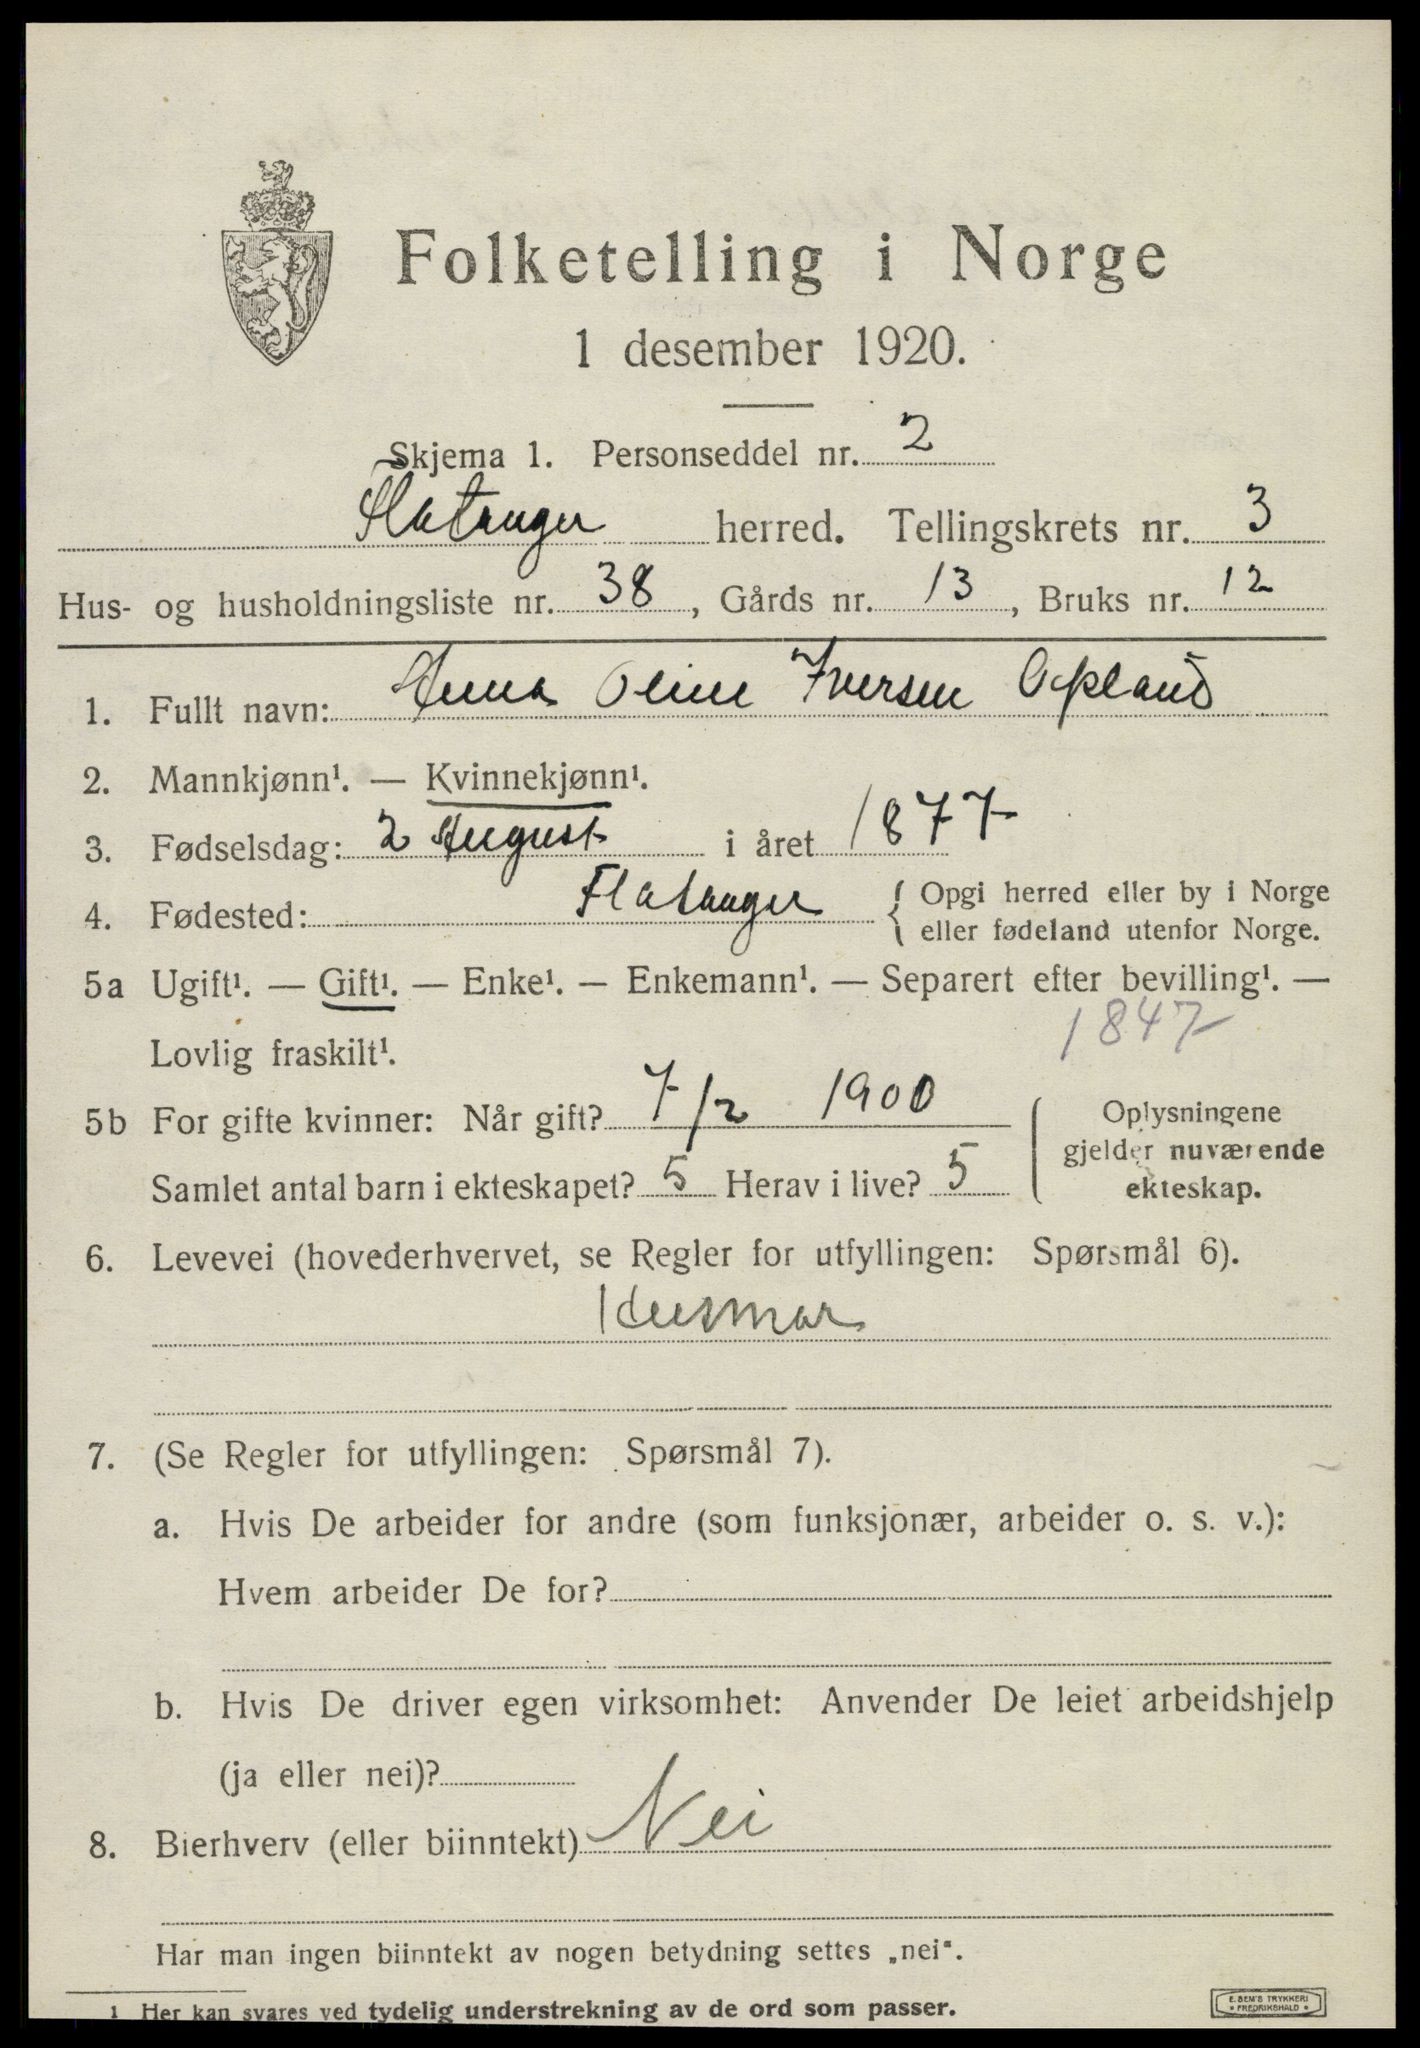 Folketelling i Norge
1 desember 1920.
Skjema 1. Personseddel nr. 2
Flatanger herred. Tellingskrets nr. 3
Hus- og husholdningsliste nr. 38, Gårds nr. 13, Bruks nr. 12
1. Fullt navn: Anna Oline Iversen Opland
2. Mannkjønn¹. — Kvinnekjønn¹.
3. Fødselsdag: 2 August i året 1877
4. Fødested: Flatanger { Opgi herred eller by i Norge
eller fødeland utenfor Norge.
5a Ugift¹. — Gift¹. — Enke¹. — Enkemann¹. — Separert efter bevilling¹. —
Lovlig fraskilt¹.
1847
5b For gifte kvinner: Når gift? 7/2 1900
Samlet antal barn i ekteskapet? 5 Herav i live? 5
Oplysningene
gjelder nuværende
ekteskap.
6. Levevei (hovederhvervet, se Regler for utfyllingen: Spørsmål 6).
Husmor
7. (Se Regler for utfyllingen: Spørsmål 7).
a. Hvis De arbeider for andre (som funksjonær, arbeider o. s. v.):
Hvem arbeider De for?
b. Hvis De driver egen virksomhet: Anvender De leiet arbeidshjelp
(ja eller nei)?
8. Bierhverv (eller biinntekt) Nei
Har man ingen biinntekt av nogen betydning settes „nei“.
1 Her kan svares ved tydelig understrekning av de ord som passer.
E. SEM'S TRYKKERI
* FREDRIKSHALD *